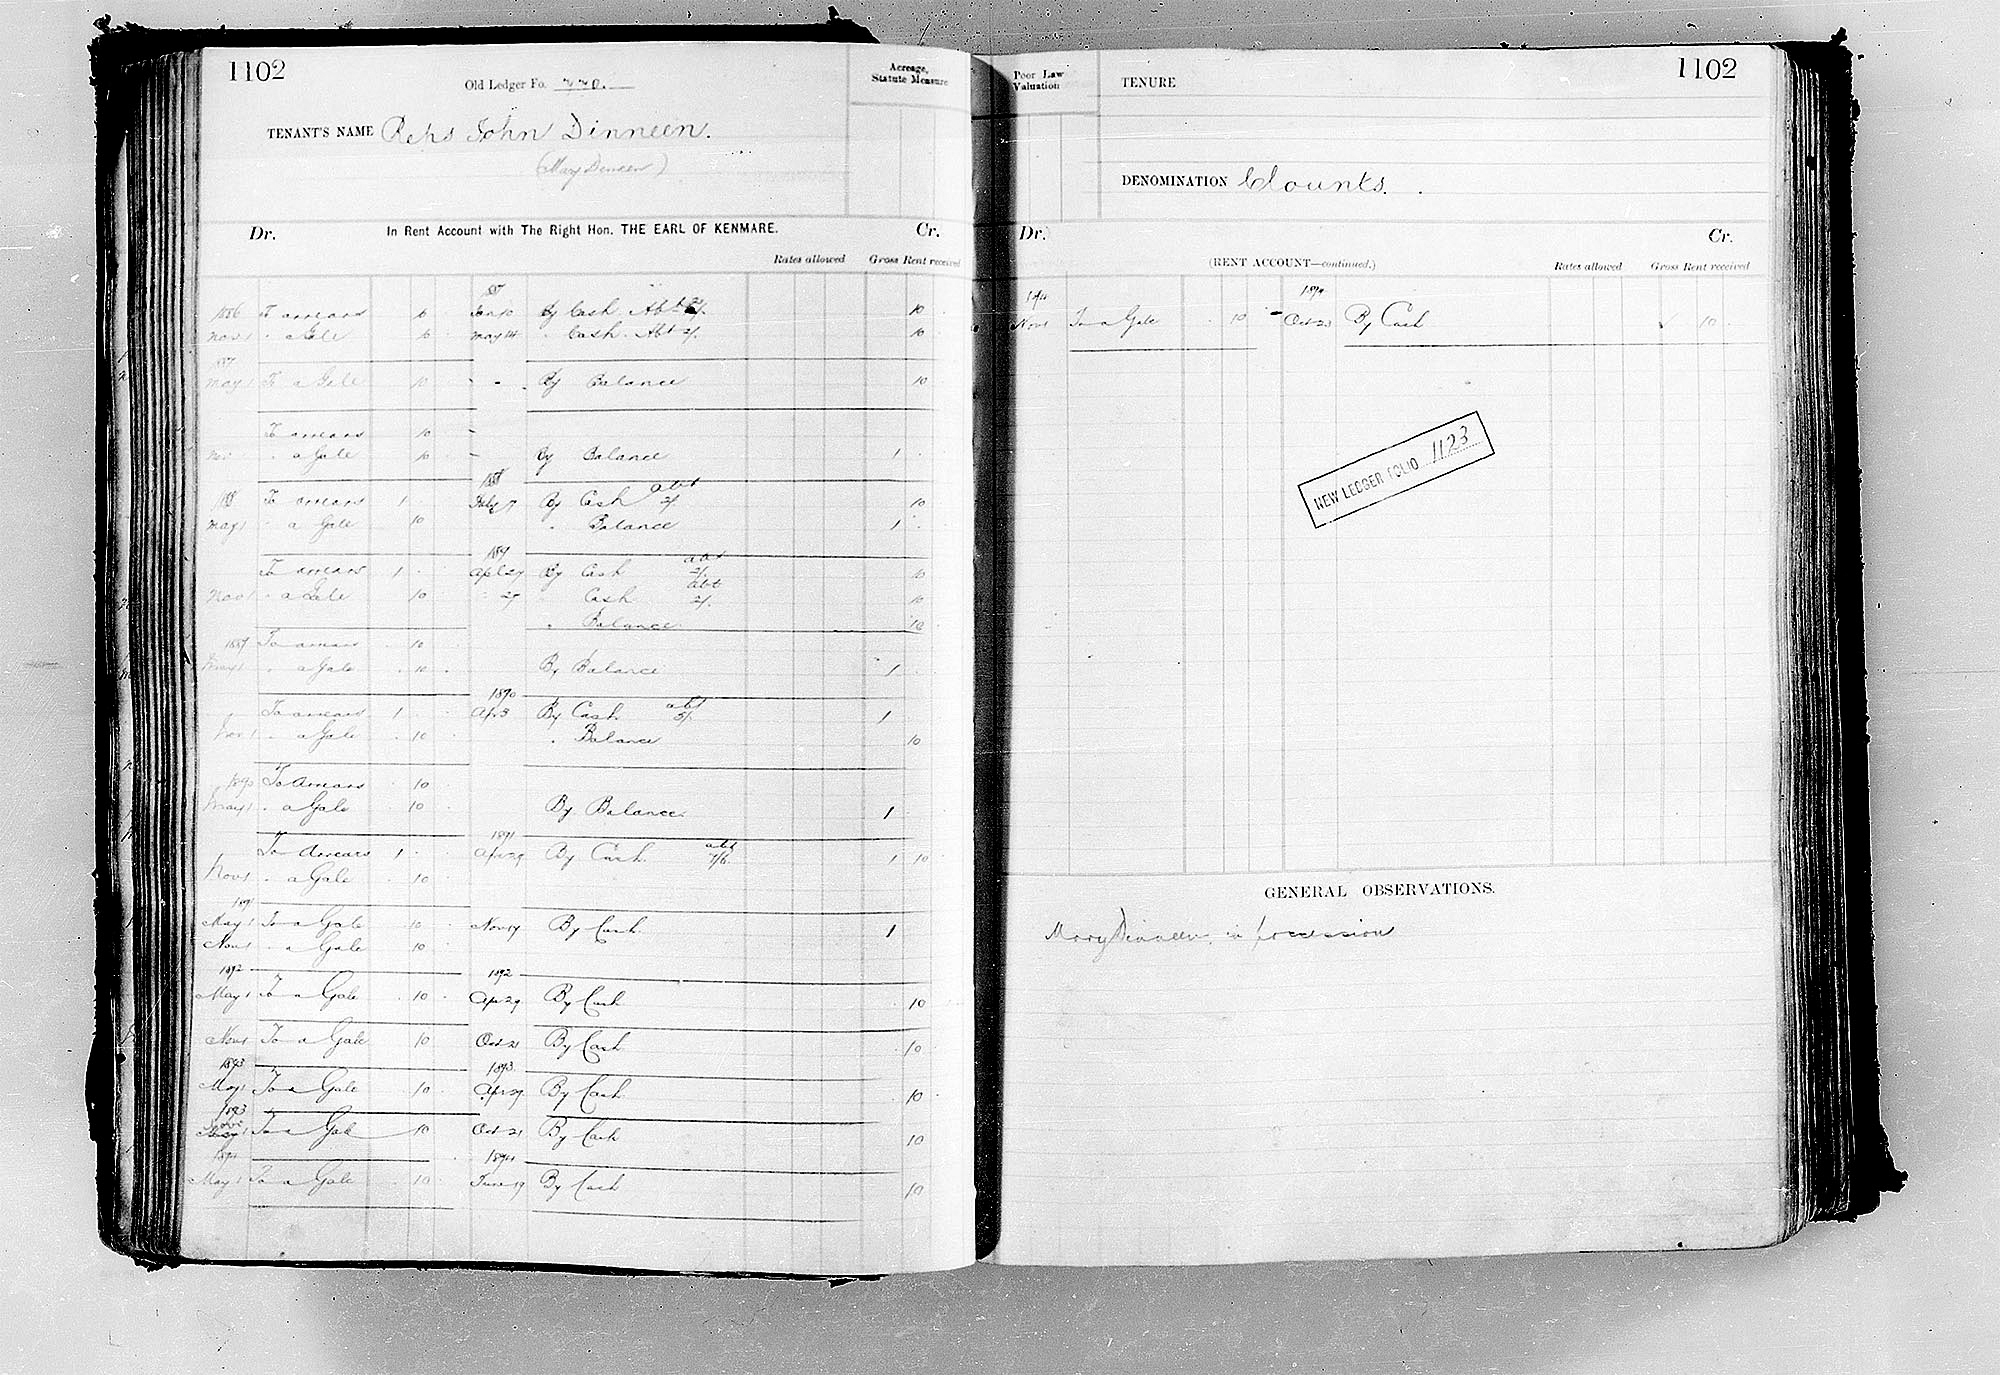 1102
Old Ledger Fo. 220.
Acreage,
Statute Measure
TENANT'S NAME Reps John Dinneen.
(Mary Dineen)
Dr. In Rent Account with The Right Hon. THE EARL OF KENMARE. Cr.
Rates allowed Gross Rent received
1886 To arrears 10 Jan 10 By Cash Abt 2/. 10
Nov 1 " a Gale 10 May 14 " Cash Abt 2/. 10
1887
May 1 To a Gale 10 - - By Balance 10
To arrears 10 -
Nov " a Gale 10 - By Balance 1
1888
To arrears 1 July 7 By Cash abt 2/. 10
May 1 " a Gale 10 " Balance 1
To arrears 1 Apl 27 By Cash abt 2/. 10
Nov 1 " a Gale 10 " 27 Cash abt 2/. 10
" Balance 10
1889 To arrears 10
May 1 " a Gale 10 By Balance 1
1890
To arrears 1 Apr 3 By Cash abt 5/. 1
Nov 1 " a Gale 10 " Balance 10
1890 To Arrears 10
May 1 " a Gale 10 By Balance 1
1891
To Arrears 1 Apr 29 By Cash abt 7/6. 1 10
Nov 1 " a Gale 10
1891
May 1 To a Gale 10 Nov 17 By Cash 1
Nov 1 " a Gale 10
1892 1892
May 1 To a Gale 10 Apr 29 By Cash 10
Nov 1 To a Gale 10 Oct 21 By Cash 10
1893 1893
May 1 To a Gale 10 Apr 29 By Cash 10
1893
Nov 1 To a Gale 10 Oct 21 By Cash 10
1894 1894
May 1 To a Gale 10 June 19 By Cash 10
Poor Law
Valuation
TENURE
1102
DENOMINATION Clounts.
Dr. Cr.
(RENT ACCOUNT—continued.) Rates allowed Gross Rent received
1894 1894
Nov 1 To a Gale 10 Oct 23 By Cash 10
NEW LEDGER FOLIO 1123
GENERAL OBSERVATIONS.
Mary Dinneen in possession